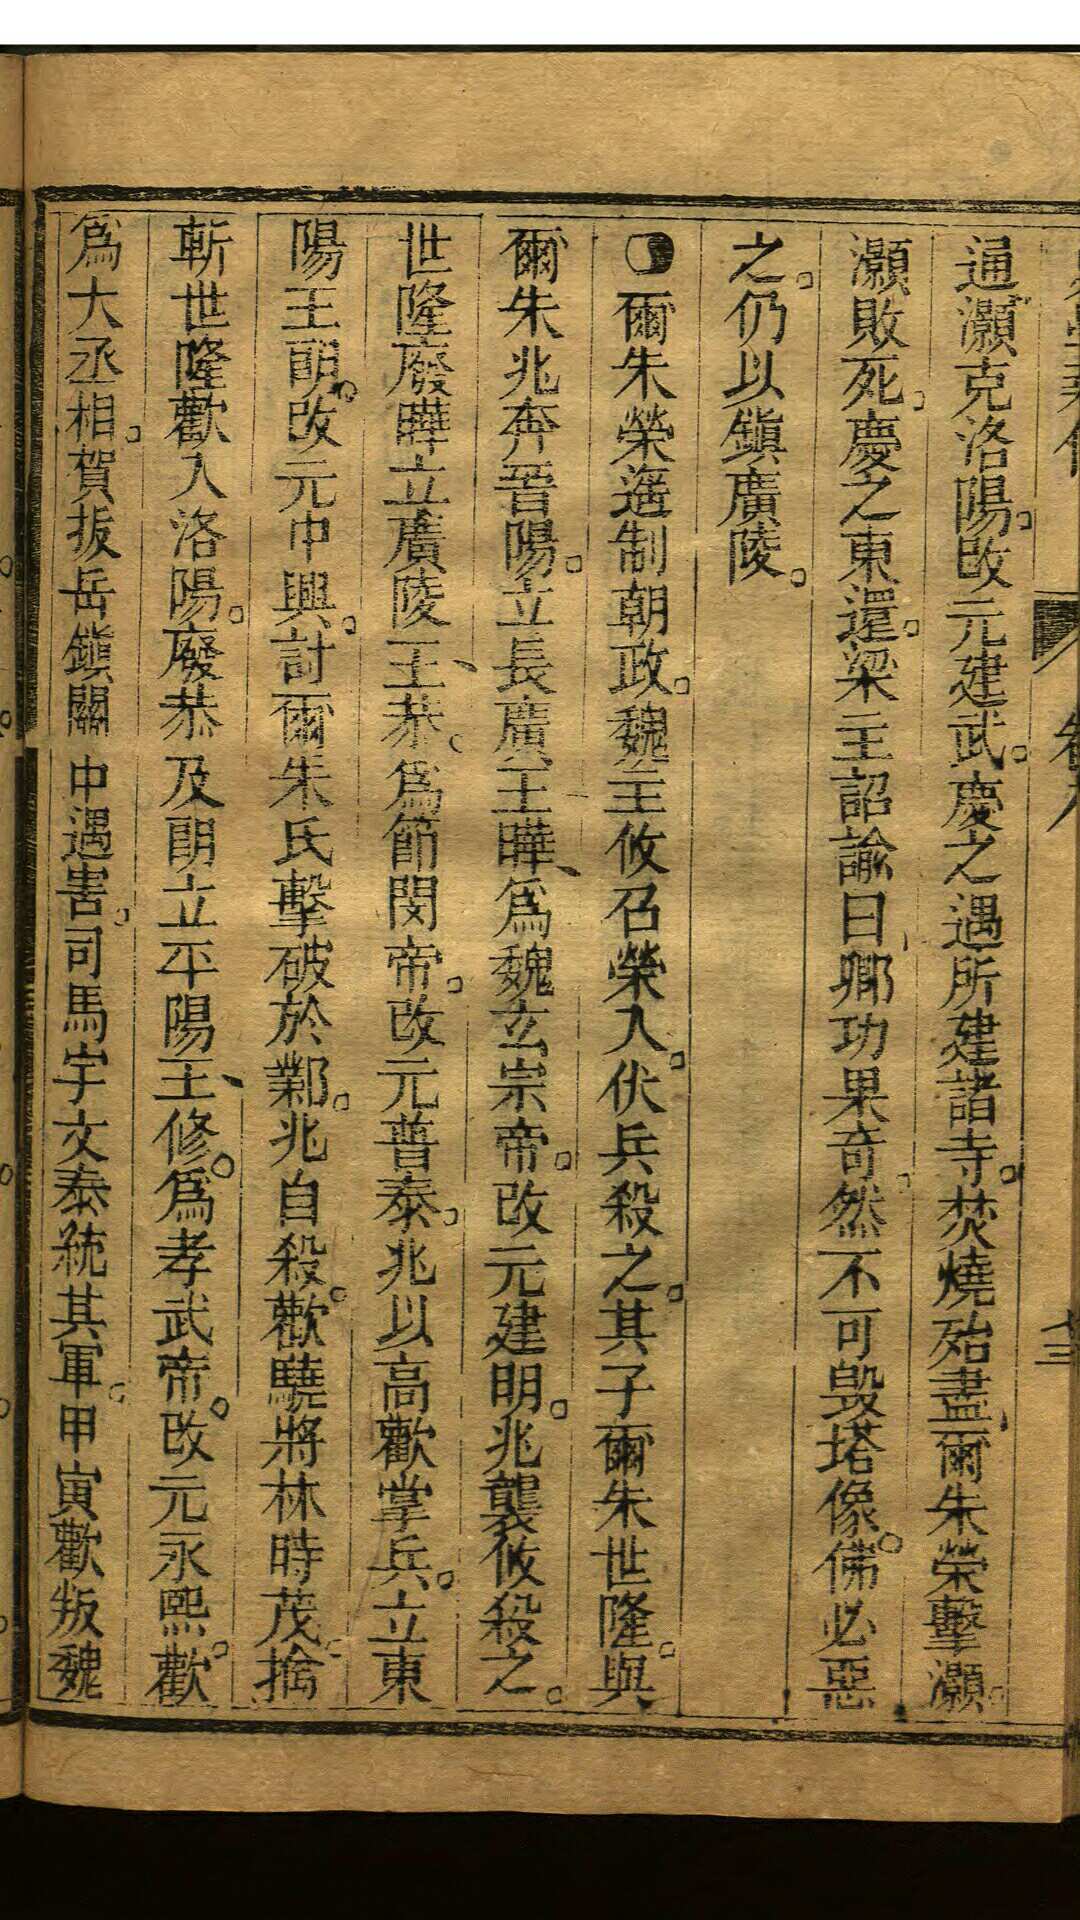 通灝克洛陽改元建武慶之遇所建諸寺焚燒殆盡爾朱榮擊灝
灝敗死慶之東還梁主詔諭曰卿功果奇然不可毁塔像佛必惡
之仍以鎭廣陵
爾朱榮遥制朝政魏主攸召榮入伏兵殺之其子爾朱世隆與
爾朱兆奔晉陽立長廣王曄爲魏玄宗帝改元建明兆襲攸殺之
世隆廢曄立廣陵王恭爲節閔帝改元普泰兆以高歡掌兵立東
陽王朗改元中興討爾朱氏擊破於鄴兆自殺歡驍將林時茂擒
斬世隆歡入洛陽廢恭及朗立平陽王修爲孝武帝改元永熙歡
爲大丞相賀拔岳鎭關中遇害司馬宇文泰統其軍甲寅歡叛魏